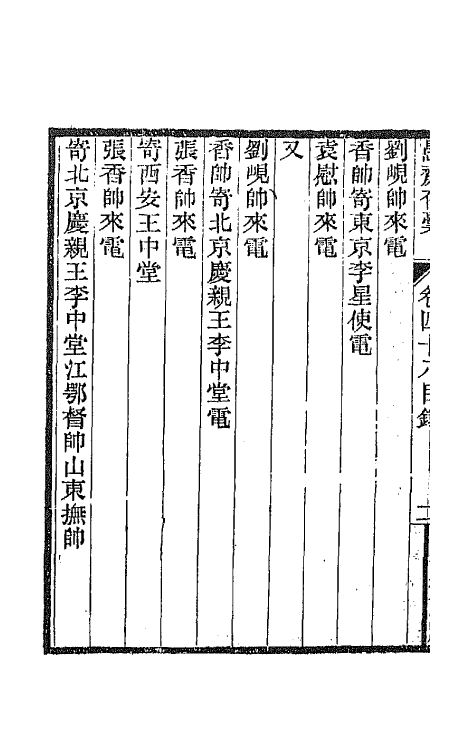 愚齋存稾 卷四十八目錄 二
劉峴帥來電
香帥寄東京李星使電
袁慰帥來電
又
劉峴帥來電
香帥寄北京慶親王李中堂電
張香帥來電
寄西安王中堂
張香帥來電
寄北京慶親王李中堂江鄂督帥山東撫帥